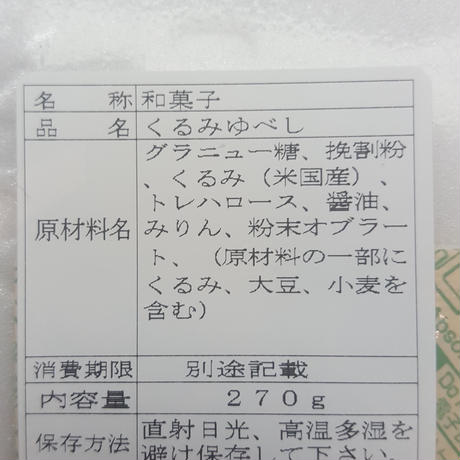 名 称 和菓子
品 名 くるみゆべし
原材料名
グラニュー糖、挽割粉
、くるみ（米国産）、
トレハロース、醤油、
みりん、粉末オブラー
ト、（原材料の一部に
くるみ、大豆、小麦を
含む）
消費期限 別途記載
内容量 270g
保存方法 直射日光、高温多湿を
避け保存して下さい。